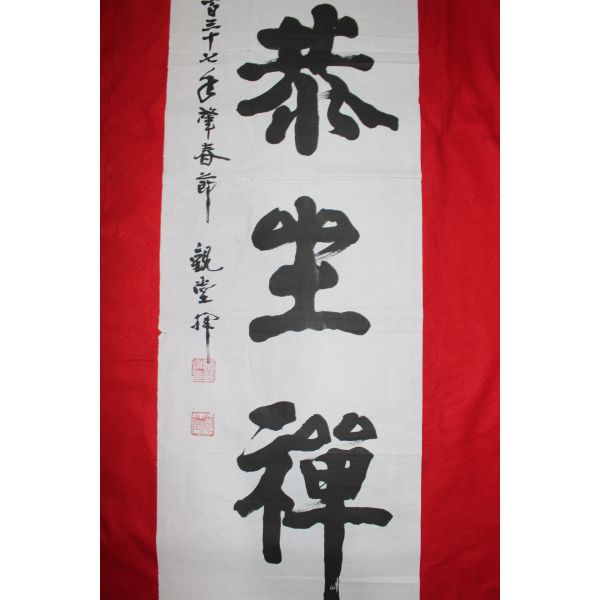 恭坐禪
百三十七年肇春節 觀堂揮